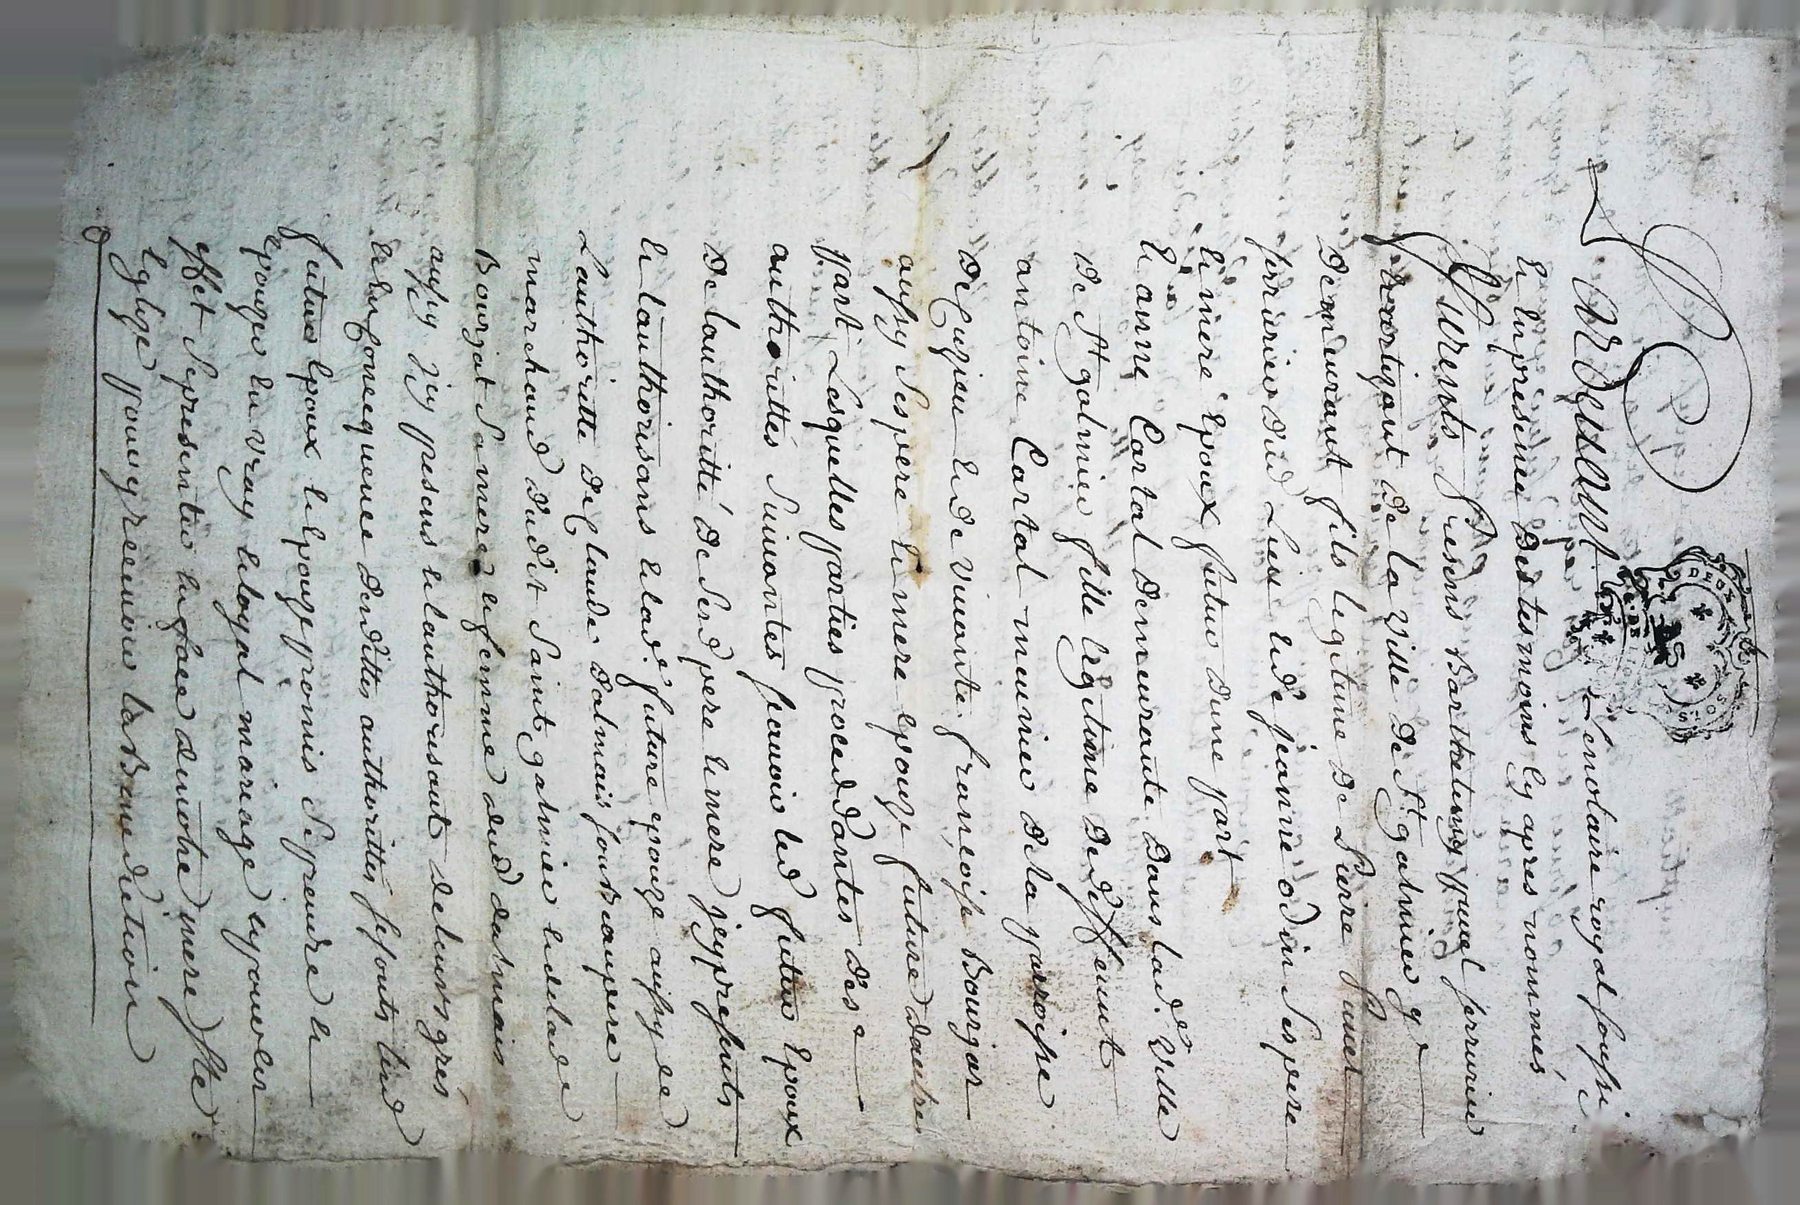 DEUX SOLS
G. DE
Pardevant Le notaire royal soussi
et en presence des tesmoins cy apres nommés
furents presens Barthelemy jamet serrurier
pratiquant de la ville de St galmier y
demeurant fils legitime de Piere jamet
serrurier dud Lieu et de jeanne odin Ses pere
et mere Epoux futur dune part
Et anne Cartal demeurante dans lad.e Ville
de St galmier fille legitime de deffeunt
antoine Cartal meunier de la parroisse
de Cuzieu et de vivante francoise Bourgat
aussy Ses pere et mere epouze future dautre
part Lesquelles parties proceddantes des
authorittés Suivantes scavoir led futur Epoux
de lauthoritté de Sesd pere et mere jcy presents
et lauthorisans et lad.e future epouze aussy de
Lauthoritté de Claude dalmais son Beaupere
marchand dudit Saint galmier et de lade
Bourgat Sa mere et femme dud dalmais
aussy jcy presens et lauthorisant de leurs grés
et en Consequence desdittes authorittés se sonts lesd
futur Epoux et Epouze promis Se prendre et
Epouzer en vray et loyal mariage et pour cet
effet Se presenter en face de notre mere Ste
Eglize pour y recevoir la Benediction